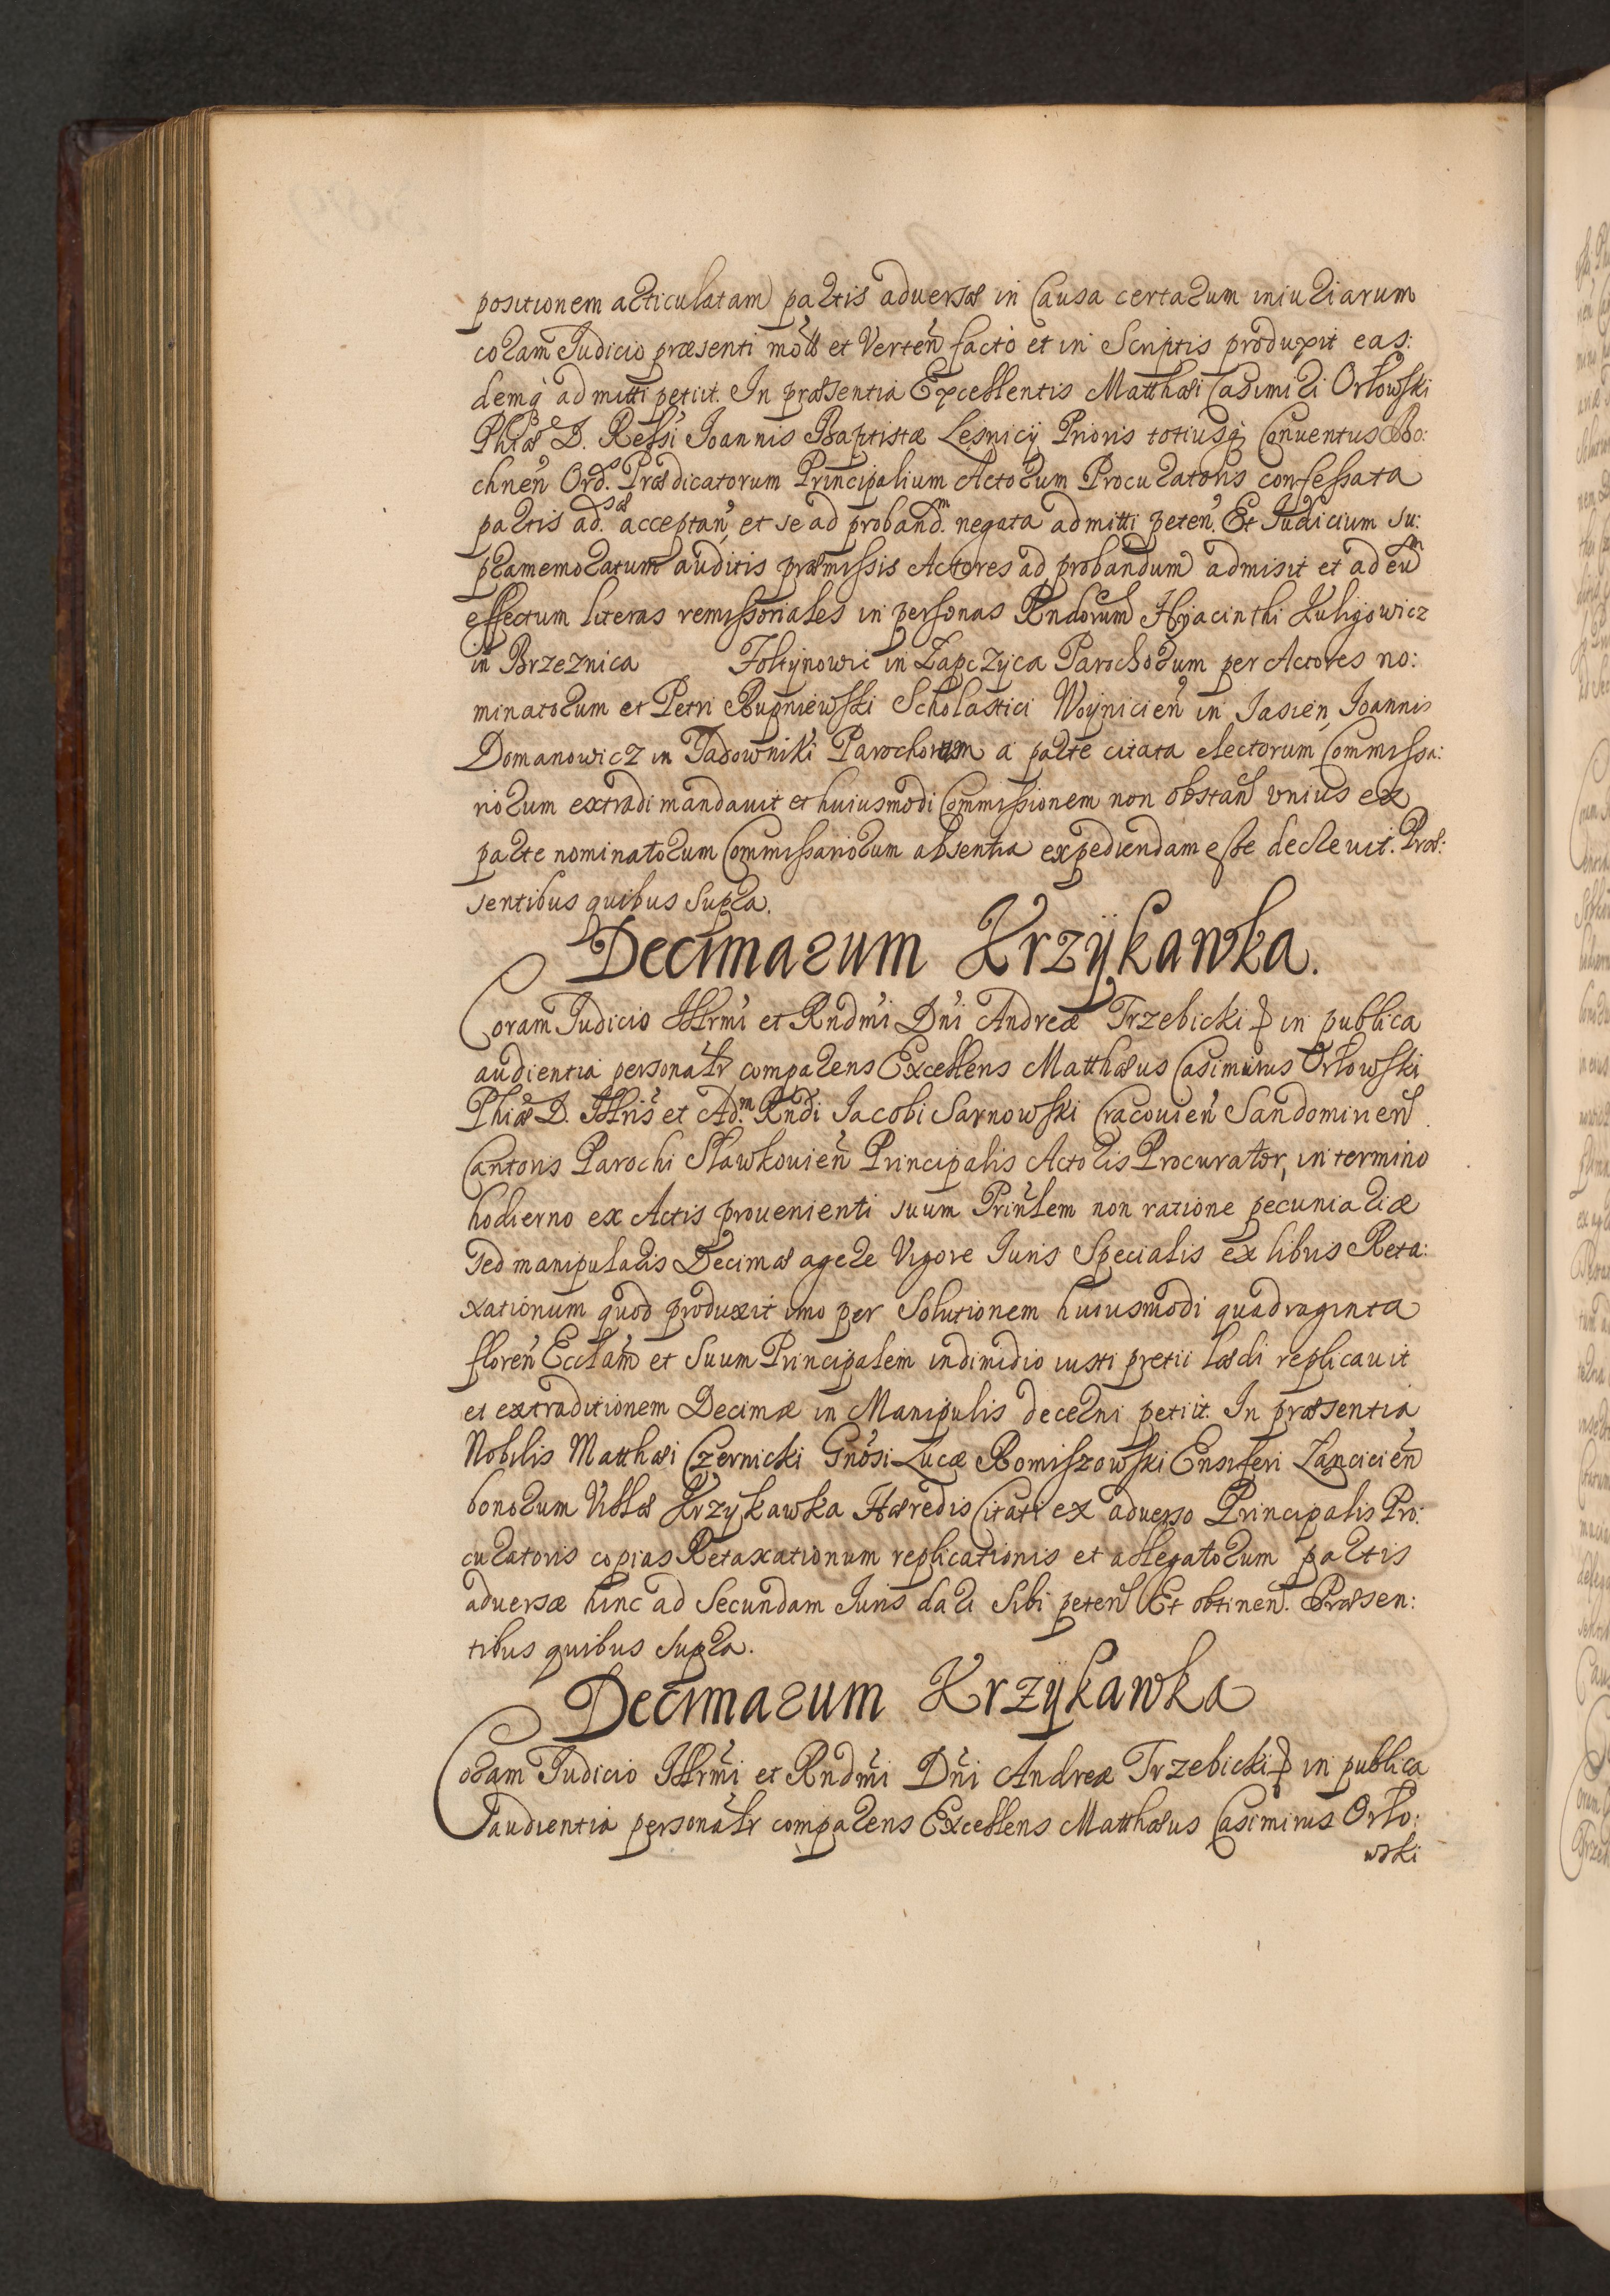 positionem articulatam partis adversæ in Causa certarum iniuriarum
coram Judicio præsenti mött et Verteñ factó et in Scriptis produxit eas:
demq́ admitti petiit. In præsentia Excellentis Matthæi Casimiri Orłowski
Phiæ D. Relssi Joannis Baptistæ Lesnicÿ Prioris totiusq; Conventus Bo:
chneñ Ord.s Prædicatorum Principalium Actorum Procuratoris confessata
partis ad.sæ acceptañ, et se ad proband.m negata admitti peteñ. Et Judicium su:
pramemoratum auditis præmissis Actores ad probandum admisit et ad eũm
effectum literas remissoriales in personas Rndorum Hyacinthi Kuligowicz
in Brzeznica Foltÿnowic in Łapczÿca Parochorum per Actores no:
minatorum et Petri Rupniewski Scholastici Woÿnicieñ in Jasień, Joannis
Domanowicz in Jadowniki Parochorum a parte citata electorum Commissa:
riorum extradi mandavit et huiusmodi Commissionem non obstañ vnius ex
parte nominatorum Commissariorum absentia expediendam esse decrevit. Præ:
sentibus quibus supra.
Decimarum Krzÿkawka.
Coram Judicio Illrmi et Rndmi Dñi Andreæ Trzebicki in publica
audientia personalr comparens Excellens Matthæus Casimirus Orłowski
Phiæ D. Illris et Ad.m Rndi Jacobi Sarnowski Cracovieñ Sandomirieñ
Cantoris Parochi Sławkovieñ Principalis Actoris Procurator, in termino
hodierno ex Actis provenienti suum Prinlem non ratione pecuniariæ
sed manipularis Decimæ agere Vigore Juris Specialis ex libris Reta:
xationum quod produxit imo per Solutionem huiusmodi quadraginta
floreñ Ecclam et Suum Principalem indimidio iusti pretii lædi replicavit
et extraditionem Decimæ in Manipulis decerni petiit. In præsentia
Nobilis Matthæi Czernicki Gnosi Lucæ Romiszowski Ensiferi Lancicieñ
bonorum Villæ Krzÿkawka Hæredis Citati ex adverso Principalis Pro:
curatoris copias Retaxationum replicationis et allegatorum partis
adversæ hinc ad Secundam Juris dari Sibi peteñ Et obtineñ. Præsen:
tibus quibus supra.
Decimarum Krzÿkawka
Coram Judicio Illrmi et Rndmi Dñi Andreæ Trzebicki in publica
audientia personalr comparens Excellens Matthæus Casimirus Orło:
wski